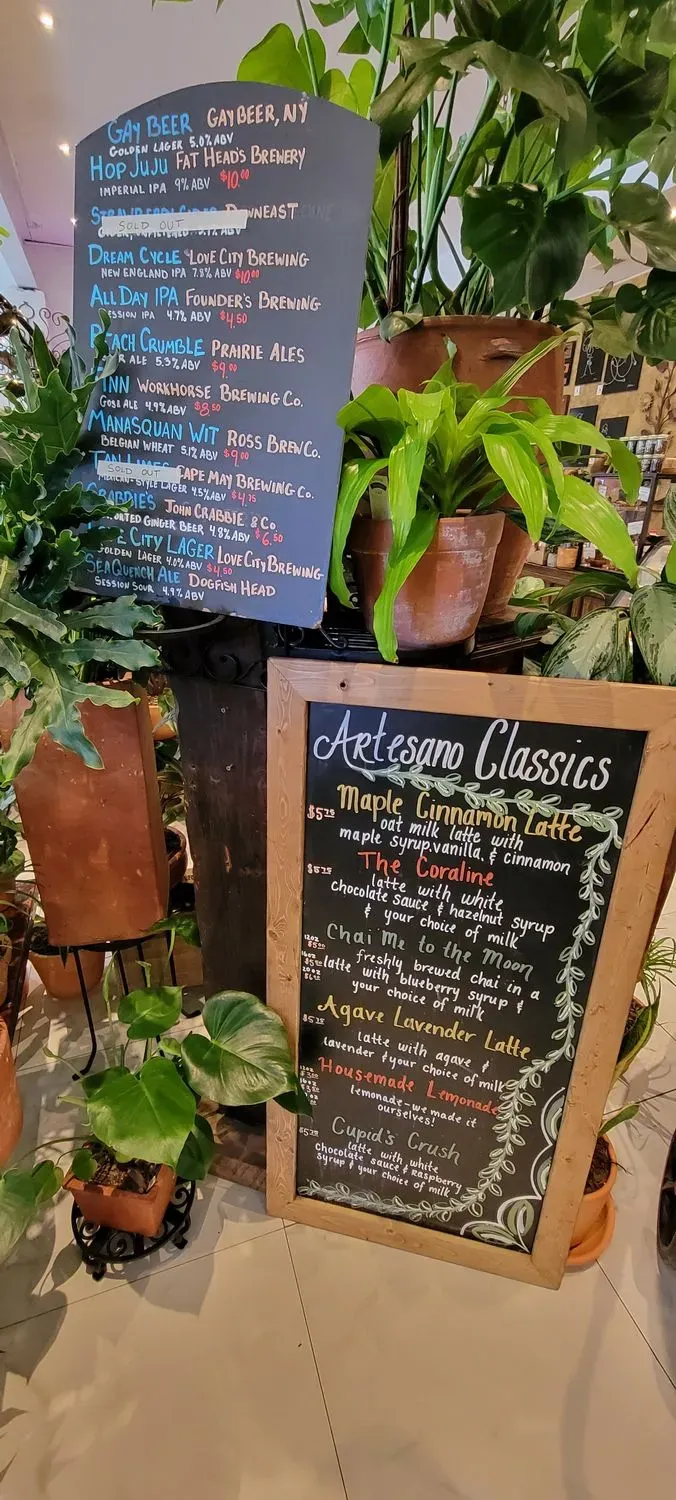 GAY BEER GAY BEER, NY
GOLDEN LAGER 5.0% ABV
HOP JUJU FAT HEAD'S BREWERY
IMPERIAL IPA 9% ABV $10.00
DOWNEAST
SOLD OUT
DREAM CYCLE LOVE CITY BREWING
NEW ENGLAND IPA 7.8% ABV $10.00
ALL DAY IPA FOUNDER'S BREWING
SESSION IPA 4.7% ABV $4.50
CRUMBLE PRAIRIE ALES
ALE 5.3% ABV $9.00
INN WORKHORSE BREWING CO.
GOSE ALE 4.9% ABV $8.50
MANASQUAN WIT ROSS BREW CO.
BELGIAN WHEAT 5.1% ABV $9.00
SOLD OUT CAPE MAY BREWING CO.
MEXICAN-STYLE LAGER 4.5% ABV $4.75
CRABBIE'S JOHN CRABBIE & CO
GINGER BEER 4.8% ABV $6.50
CITY LAGER LOVE CITY BREWING
GOLDEN LAGER 4.0% ABV $4.50
SEAQUENCH ALE DOGFISH HEAD
SESSION SOUR 4.9% ABV
Artesano Classics
$5.75 Maple Cinnamon Latte
oat milk latte with
maple syrup, vanilla, & cinnamon
The Coraline
latte with white
chocolate sauce & hazelnut syrup
& your choice of milk
Chai Me to the Moon
freshly brewed chai in a
latte with blueberry syrup &
your choice of milk
Agave Lavender Latte
latte with agave &
lavender & your choice of milk
Housemade Lemonade
lemonade-we made it
ourselves!
Cupid's Crush
latte with white
chocolate sauce & raspberry
syrup & your choice of milk